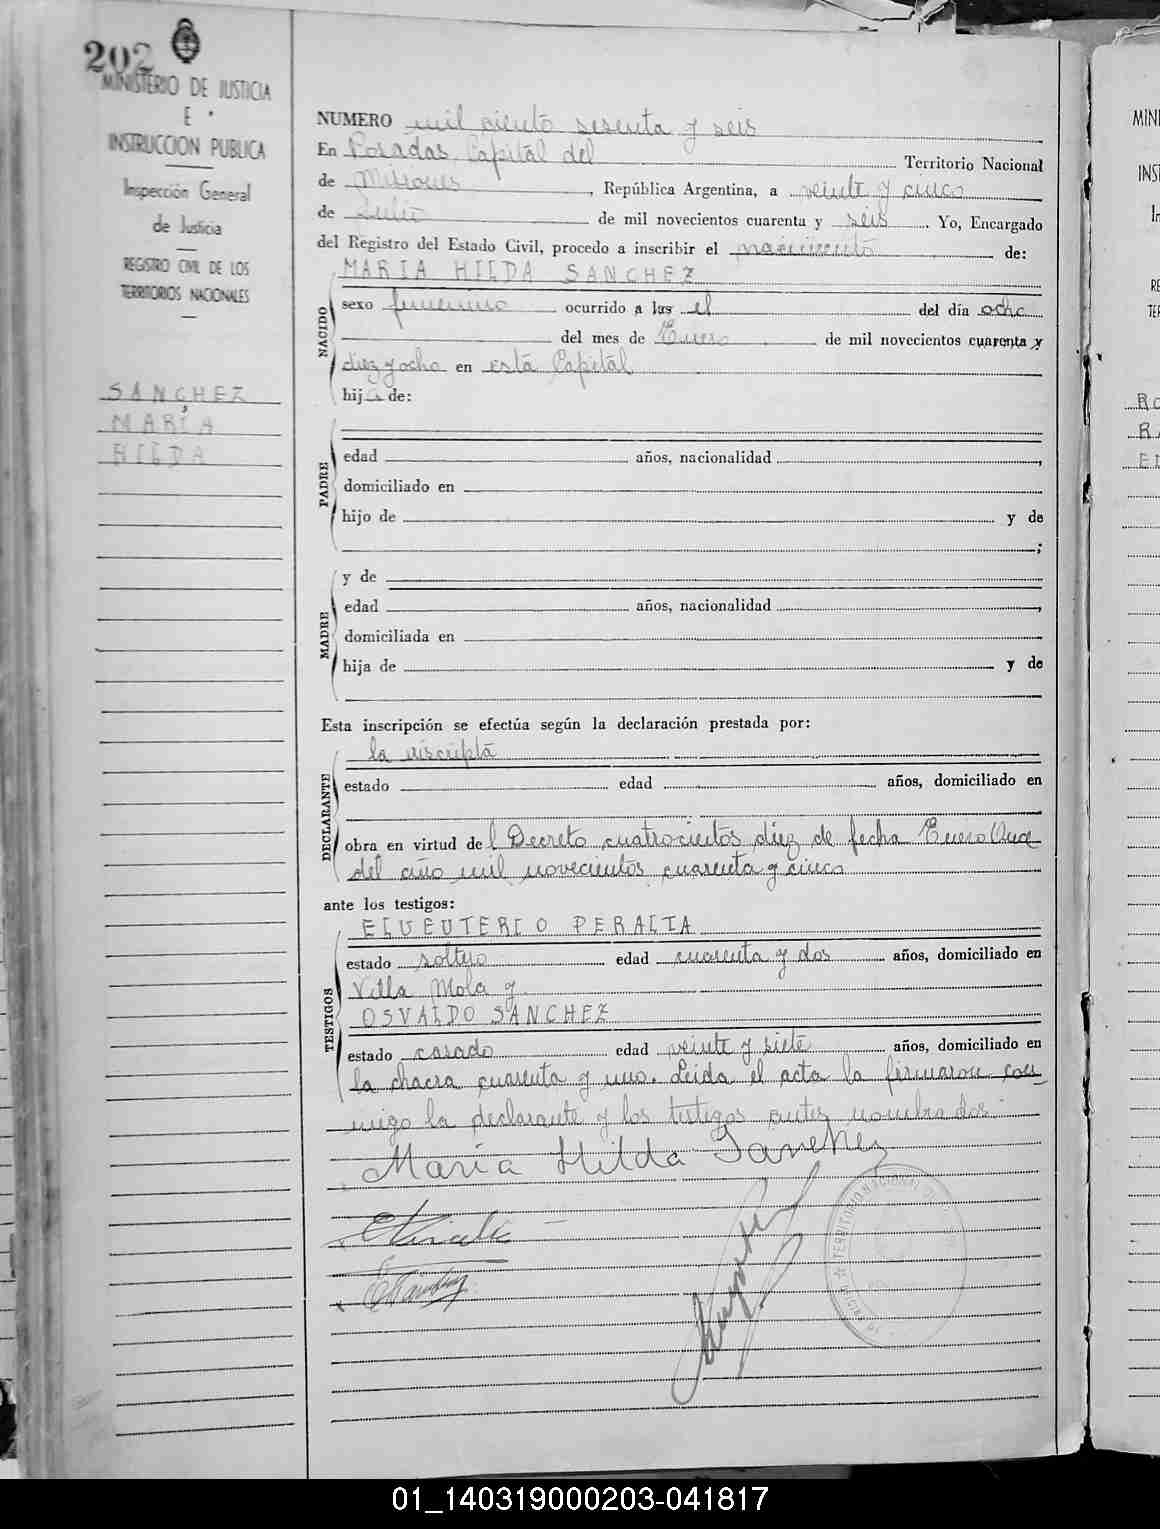 202
MINISTERIO DE JUSTICIA
E
INSTRUCCION PUBLICA
Inspección General
de Justicia
REGISTRO CIVIL DE LOS
TERRITORIOS NACIONALES
SANCHEZ
MARÍA
HILDA
NUMERO mil ciento sesenta y seis
En Posadas, Capital del Territorio Nacional
de Misiones, República Argentina, a veinte y cinco
de Julio de mil novecientos cuarenta y seis. Yo, Encargado
del Registro del Estado Civil, procedo a inscribir el nacimiento de:
NACIDO
MARIA HILDA SANCHEZ
sexo femenino ocurrido a las el del día ocho
del mes de Enero de mil novecientos cuarenta y
diez y ocho en esta Capital
hija de:
PADRE
edad años, nacionalidad ,
domiciliado en
hijo de y de
;
MADRE
y de
edad años, nacionalidad ,
domiciliada en
hija de y de
Esta inscripción se efectúa según la declaración prestada por:
DECLARANTE
la inscripta
estado edad años, domiciliado en
obra en virtud del Decreto cuatrocientos diez de fecha Enero
del año mil novecientos cuarenta y cinco
ante los testigos:
TESTIGOS
ELUEUTERIO PERALTA
estado soltero edad cuarenta y dos años, domiciliado en
Villa Mola y
OSVALDO SANCHEZ
estado casado edad veinte y siete años, domiciliado en
la chacra cuarenta y uno. Leida el acta la firmaron con
migo la declarante y los testigos antes nombrados.
María Hilda Sanchez
TERRITORIO NACIONAL
MIN
INS
RE
TER
RO
RA
01_140319000203-041817